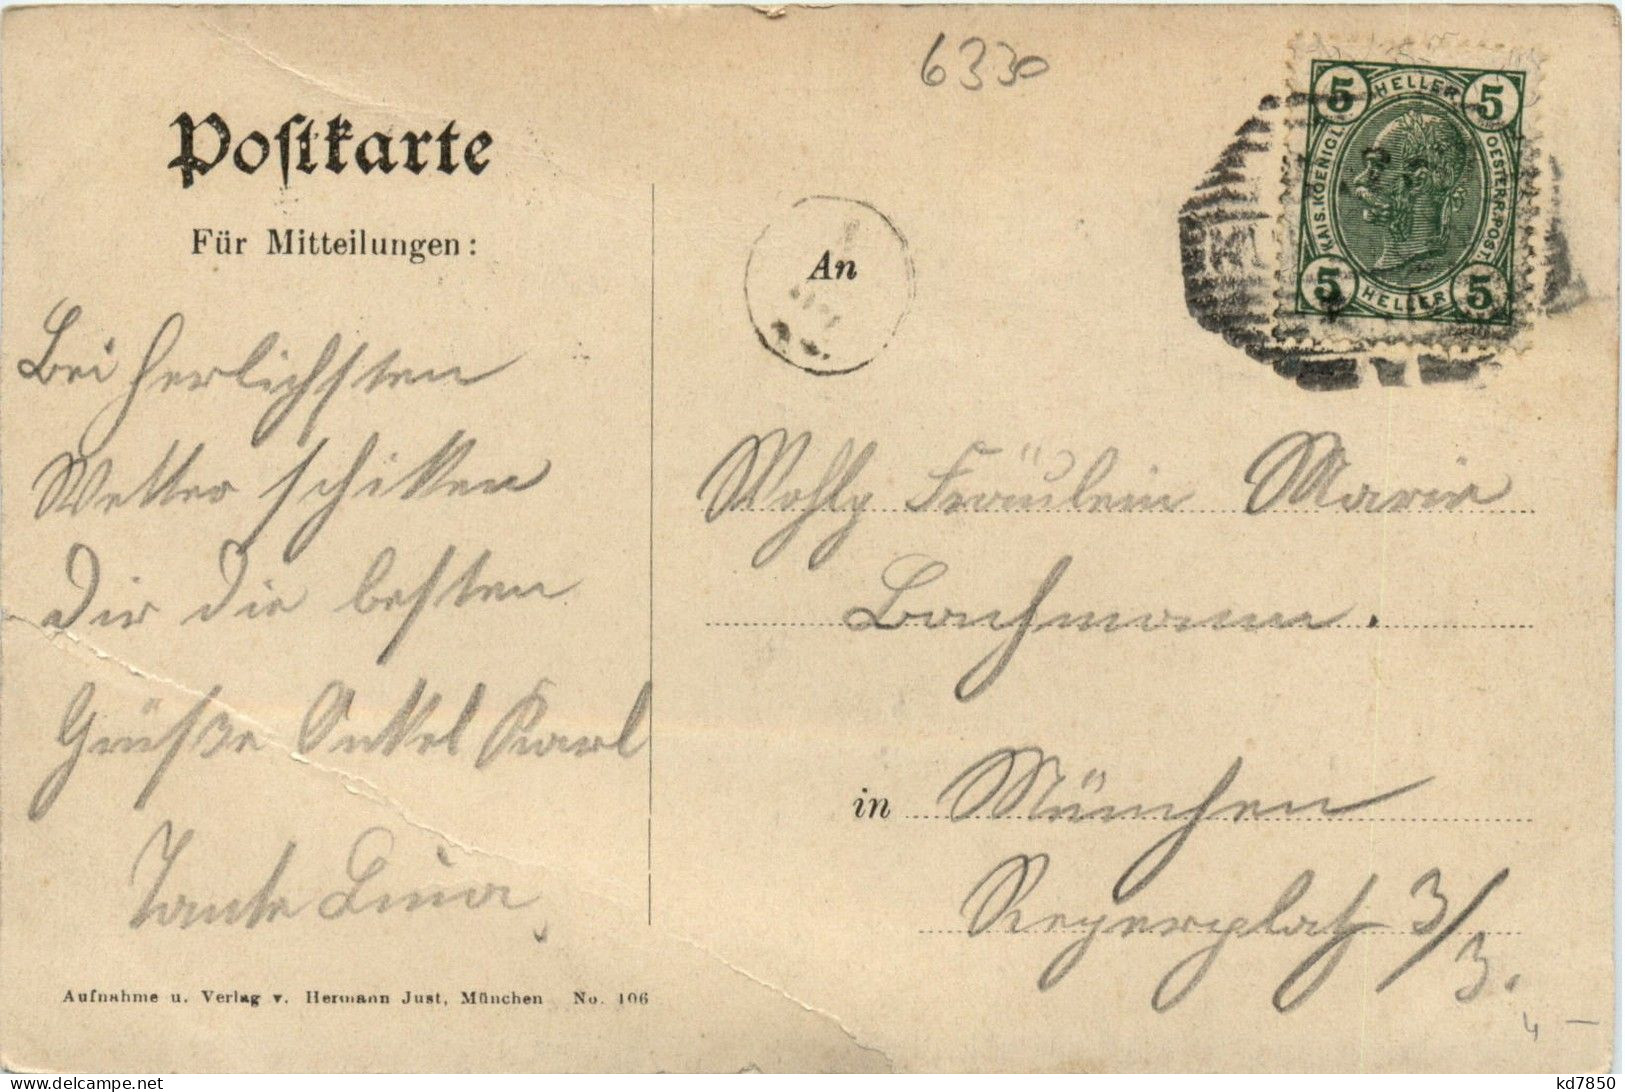 6330
Postkarte
Für Mitteilungen:
An
5 HELLER 5
KAIS. KOENIGL. OESTERR. POST.
5 HELLER 5
Bei herlichsten
Wetter schikken
Dir die besten
Grüße Onkel Karl
Tante Lina
Wohlg Fräulein Marie
Bachmann.
in München
Regerplatz 3/
3.
4 –
Aufnahme u. Verlag v. Hermann Just, München No. 106
kd7850